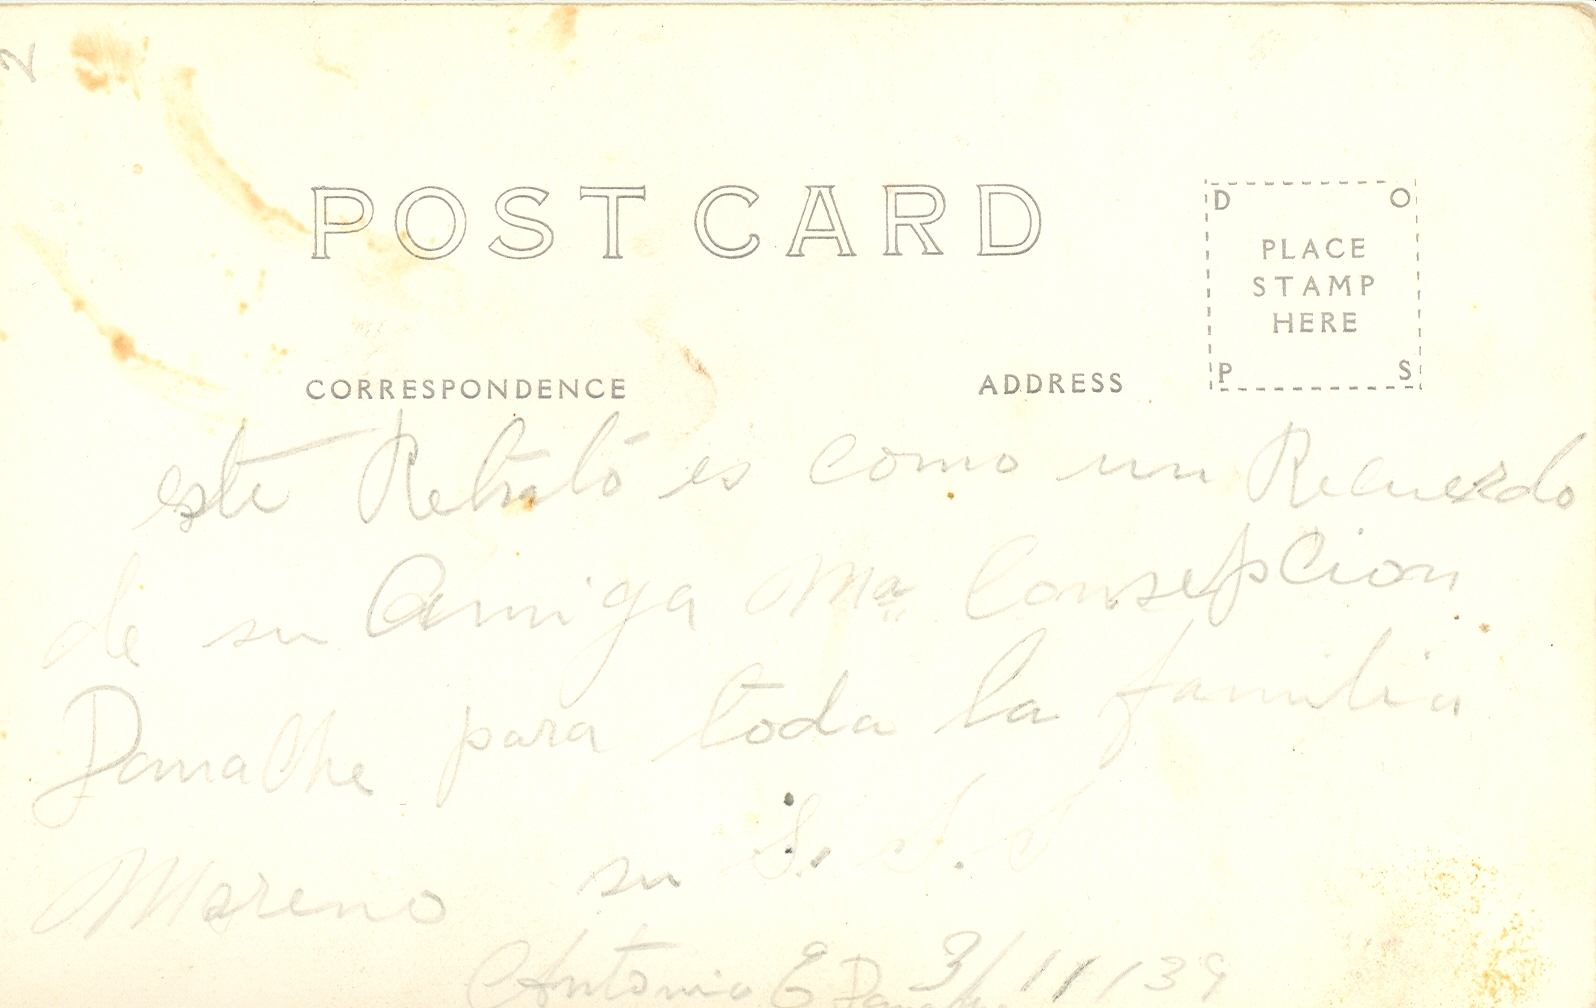 2
POST CARD
D O
PLACE
STAMP
HERE
P S
CORRESPONDENCE
ADDRESS
este Retrato es como un Recuerdo
de su Amiga Ma Consepcion
para toda la familia
Moreno su S. S. S
Antonio E 3/11/39